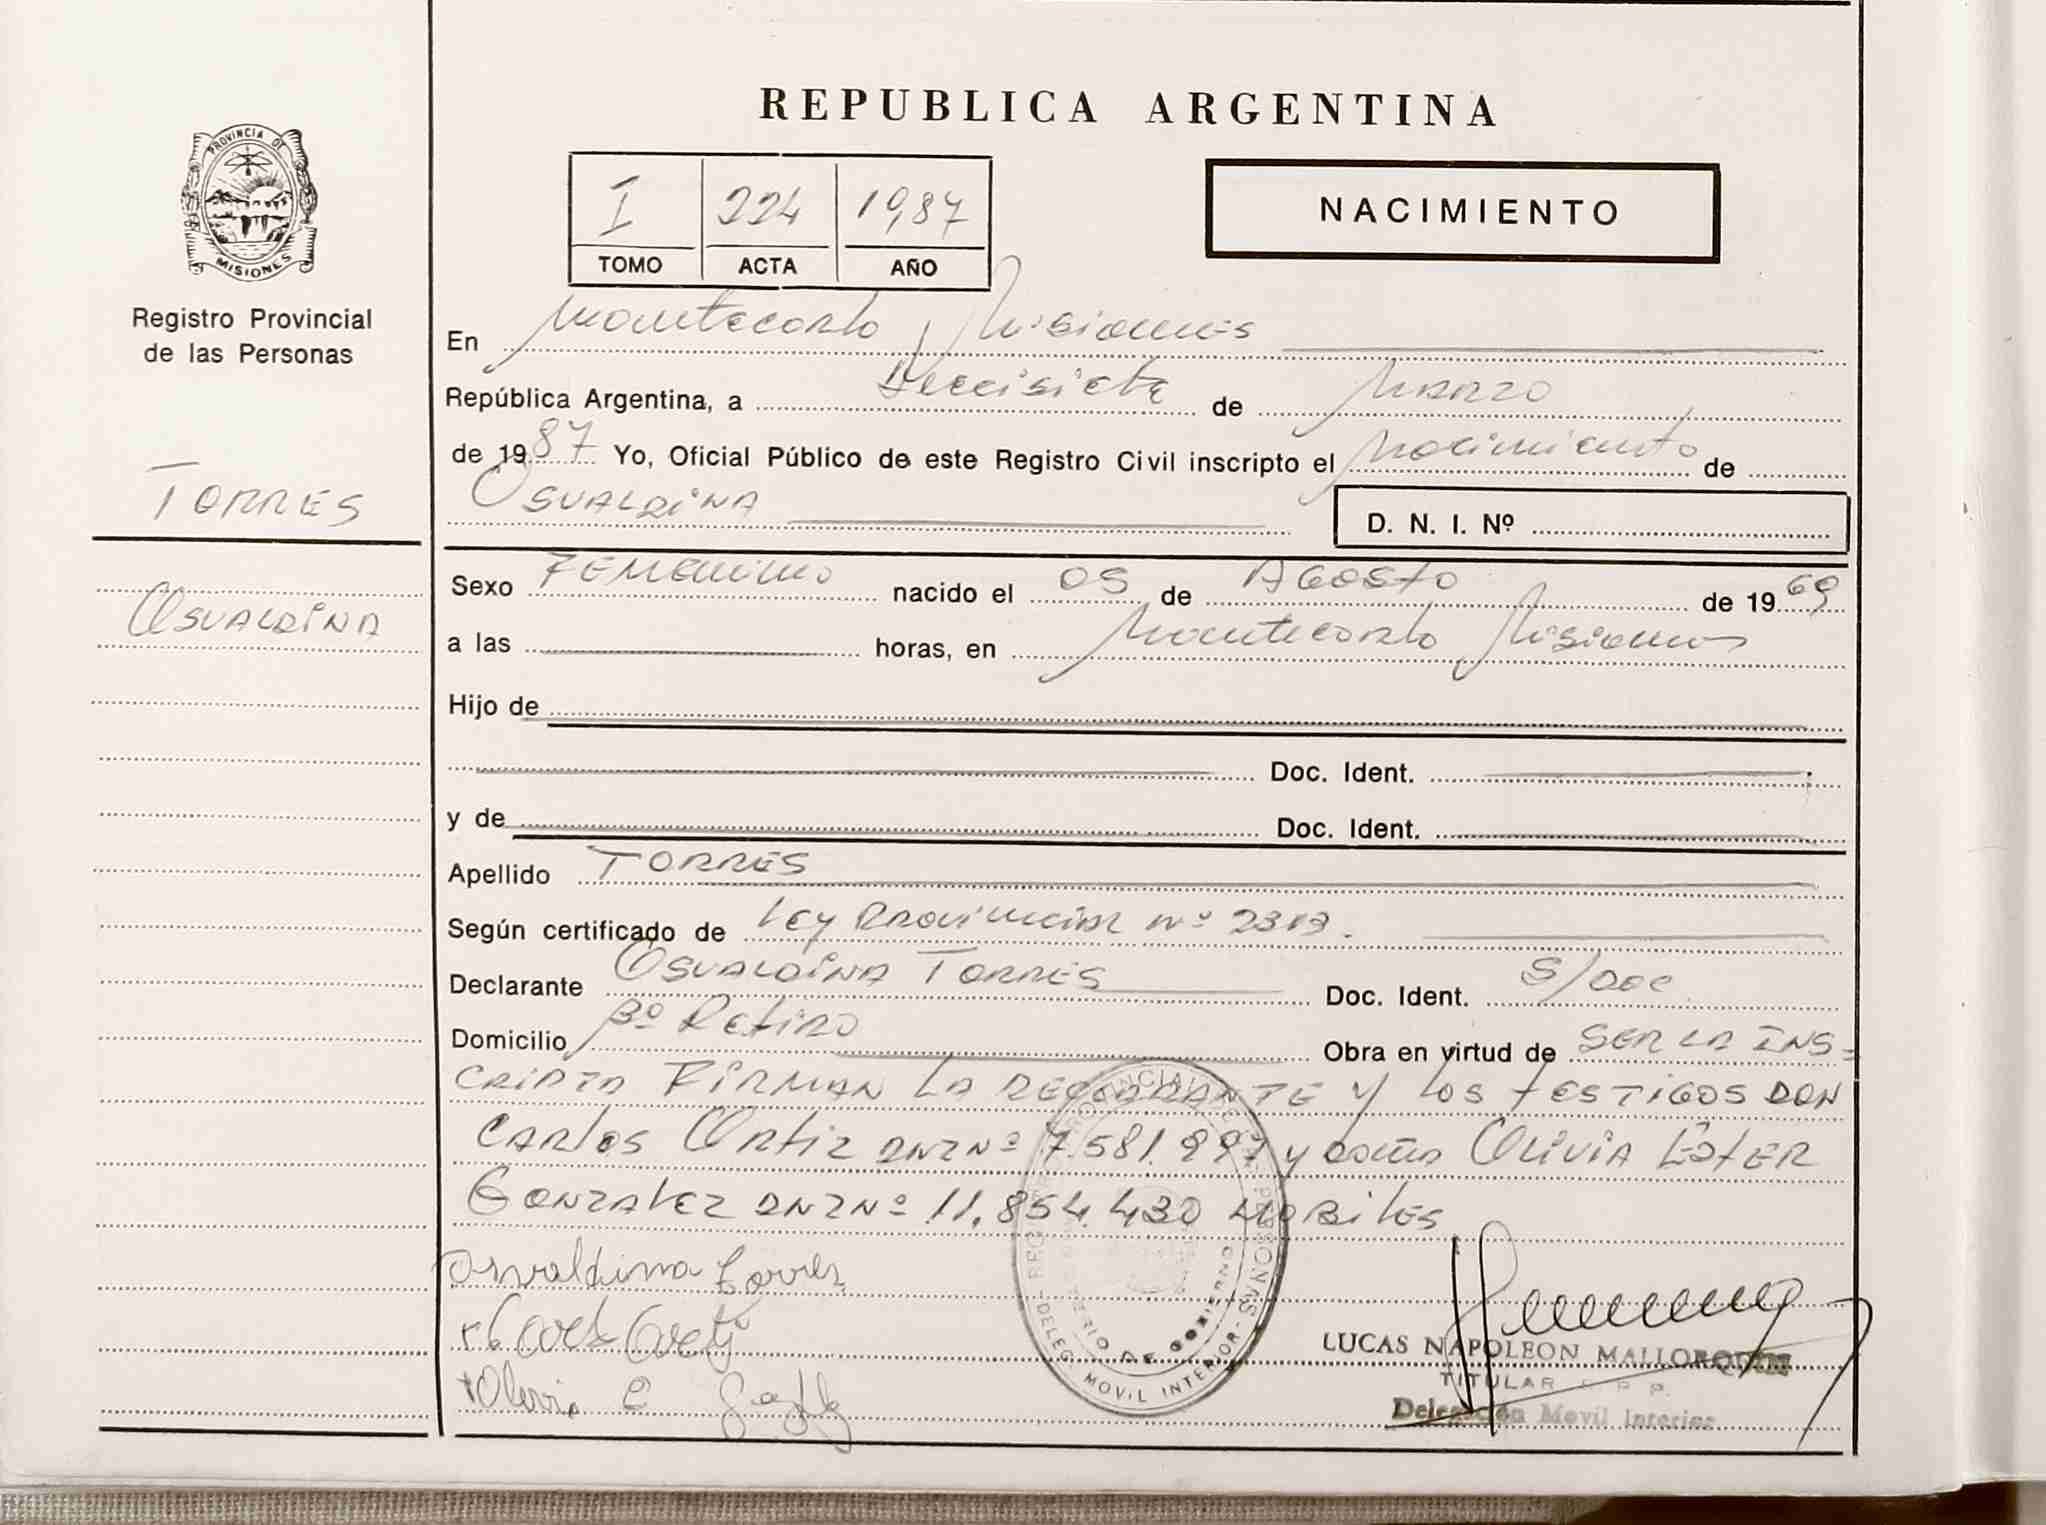 REPUBLICA ARGENTINA
PROVINCIA DE
MISIONES
Registro Provincial
de las Personas
I 224 1987
TOMO ACTA AÑO
NACIMIENTO
En Montecarlo, Misiones
República Argentina, a Diecisiete de Marzo
de 1987 Yo, Oficial Público de este Registro Civil inscripto el Nacimiento de
TORRES
OSVALDINA
D. N. I. Nº
OSVALDINA
Sexo FEMENINO nacido el 05 de AGOSTO de 1969
a las horas, en Montecarlo Misiones
Hijo de
Doc. Ident.
y de Doc. Ident.
Apellido TORRES
Según certificado de Ley Provincial nº 2313.
Declarante OSVALDINA TORRES Doc. Ident. S/DOC
Domicilio Bº Retiro Obra en virtud de SER LA INS-
CRIPTA FIRMAN LA DECLARANTE Y LOS TESTIGOS DON
CARLOS ORTIZ DNI Nº 7.581.997 y doña OLIVIA ESTER
GONZALEZ DNI Nº 11.854.430 HABILES
Osvaldina Torres
LUCAS NAPOLEON MALLORQUIN
TITULAR
Delegación Movil Interior
DELEG. MOVIL INTERIOR - REGISTRO PROVINCIAL DE LAS PERSONAS
MINISTERIO DE GOBIERNO